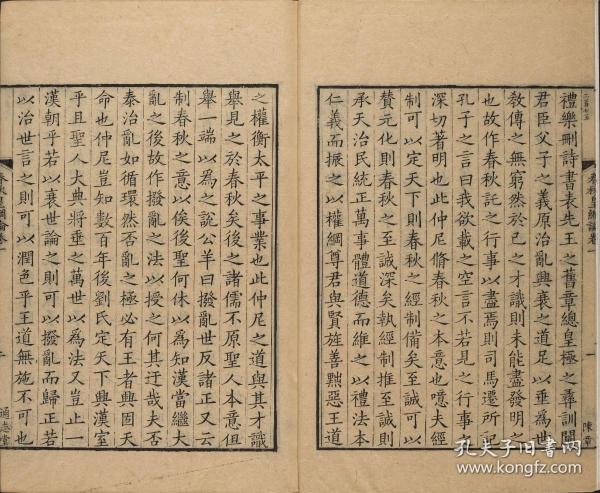 禮樂刪詩書表先王之舊章總皇極之彝訓闡
君臣父子之義原治亂興衰之道足以垂為世
教傳之無窮然於己之才識則未能盡發明之
也故作春秋託之行事以盡焉則司馬遷所記
孔子之言曰我欲載之空言不若見之行事之
深切著明也此仲尼脩春秋之本意也噫夫經
制可以定天下則春秋之經制備矣至誠可以
贊元化則春秋之至誠深矣執經制推至誠則
承天治民統正萬事體道德而維之以禮法本
仁義而振之以權綱尊君與賢旌善黜惡王道
春秋皇綱論卷一
一
陳章
之權衡太平之事業也此仲尼之道與其才識
舉見之於春秋矣後之諸儒不原聖人本意但
舉一端以為之說公羊曰撥亂世反諸正又云
制春秋之意以俟後聖何休以為知漢當繼大
亂之後故作撥亂之法以授之何其迂哉夫否
泰治亂如循環然否亂之極必有王者興固天
命也仲尼豈知數百年後劉氏定天下興漢室
乎且聖人大典將垂之萬世以為法又豈止一
漢朝乎若以衰世論之則可以撥亂而歸正若
以治世言之則可以潤色乎王道無施不可也
春秋皇綱論卷一
通志堂
孔夫子旧书网
www.kongfz.com